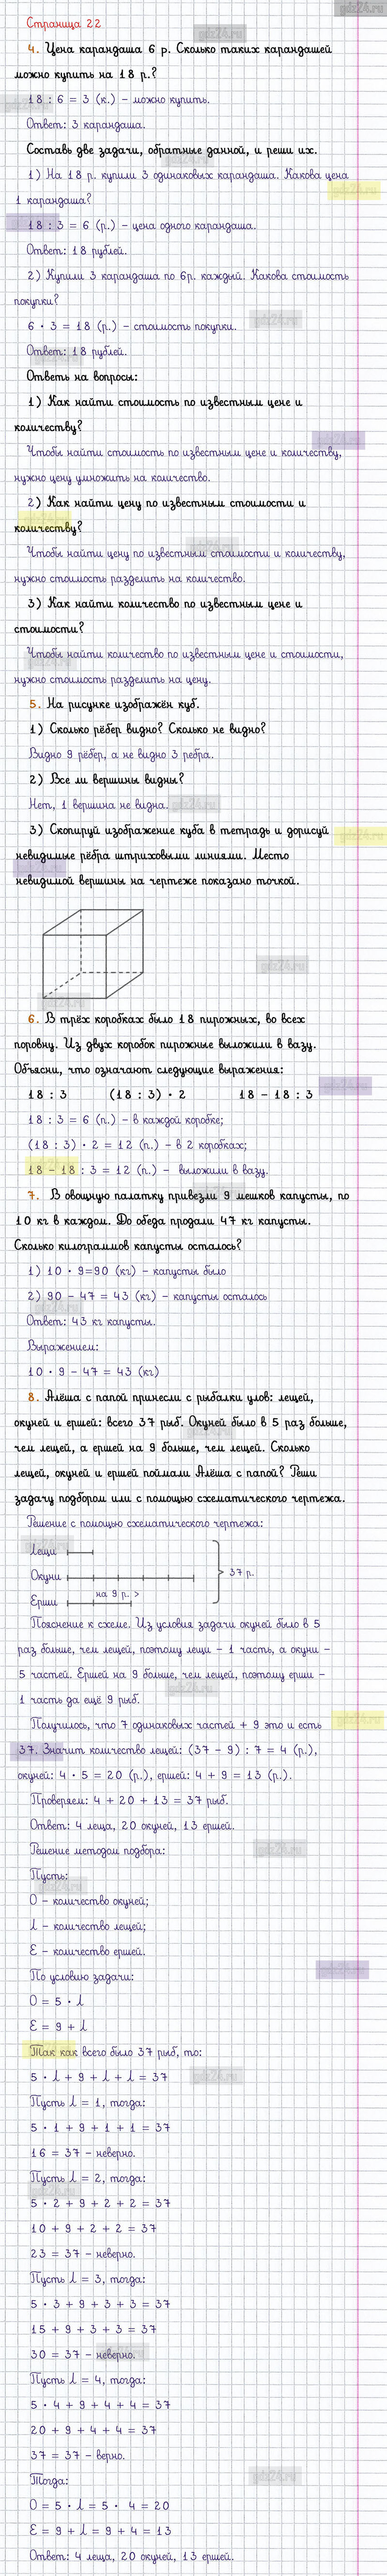 Страница 22
4. Цена карандаша 6 р. Сколько таких карандашей
можно купить на 18 р.?
18 : 6 = 3 (к.) – можно купить.
Ответ: 3 карандаша.
Составь две задачи, обратные данной, и реши их.
1) На 18 р. купили 3 одинаковых карандаша. Какова цена
1 карандаша?
18 : 3 = 6 (р.) – цена одного карандаша.
Ответ: 18 рублей.
2) Купили 3 карандаша по 6р. каждый. Какова стоимость
покупки?
6 · 3 = 18 (р.) – стоимость покупки.
Ответ: 18 рублей.
Ответь на вопросы:
1) Как найти стоимость по известным цене и
количеству?
Чтобы найти стоимость по известным цене и количеству,
нужно цену умножить на количество.
2) Как найти цену по известным стоимости и
количеству?
Чтобы найти цену по известным стоимости и количеству,
нужно стоимость разделить на количество.
3) Как найти количество по известным цене и
стоимости?
Чтобы найти количество по известным цене и стоимости,
нужно стоимость разделить на цену.
5. На рисунке изображён куб.
1) Сколько рёбер видно? Сколько не видно?
Видно 9 рёбер, а не видно 3 ребра.
2) Все ли вершины видны?
Нет, 1 вершина не видна.
3) Скопируй изображение куба в тетрадь и дорисуй
невидимые рёбра штриховыми линиями. Место
невидимой вершины на чертеже показано точкой.
6. В трёх коробках было 18 пирожных, во всех
поровну. Из двух коробок пирожные выложили в вазу.
Объясни, что означают следующие выражения:
18 : 3 (18 : 3) · 2 18 – 18 : 3
18 : 3 = 6 (п.) – в каждой коробке;
(18 : 3) · 2 = 12 (п.) – в 2 коробках;
18 – 18 : 3 = 12 (п.) – выложили в вазу.
7. В овощную палатку привезли 9 мешков капусты, по
10 кг в каждом. До обеда продали 47 кг капусты.
Сколько килограммов капусты осталось?
1) 10 · 9=90 (кг) – капусты было
2) 90 – 47 = 43 (кг) – капусты осталось
Ответ: 43 кг капусты.
Выражением:
10 · 9 – 47 = 43 (кг)
8. Алёша с папой принесли с рыбалки улов: лещей,
окуней и ершей: всего 37 рыб. Окуней было в 5 раз больше,
чем лещей, а ершей на 9 больше, чем лещей. Сколько
лещей, окуней и ершей поймали Алёша с папой? Реши
задачу подбором или с помощью схематического чертежа.
Решение с помощью схематического чертежа:
Лещи
Окуни 37 р.
на 9 р. >
Ерши
Пояснение к схеме. Из условия задачи окуней было в 5
раз больше, чем лещей, поэтому лещи – 1 часть, а окуни –
5 частей. Ершей на 9 больше, чем лещей, поэтому ерши –
1 часть да ещё 9 рыб.
Получилось, что 7 одинаковых частей + 9 это и есть
37. Значит количество лещей: (37 – 9) : 7 = 4 (р.),
окуней: 4 · 5 = 20 (р.), ершей: 4 + 9 = 13 (р.).
Проверяем: 4 + 20 + 13 = 37 рыб.
Ответ: 4 леща, 20 окуней, 13 ершей.
Решение методом подбора:
Пусть:
О – количество окуней;
Л – количество лещей;
Е – количество ершей.
По условию задачи:
О = 5 · Л
Е = 9 + Л
Так как всего было 37 рыб, то:
5 · Л + 9 + Л + Л = 37
Пусть Л = 1, тогда:
5 · 1 + 9 + 1 + 1 = 37
16 = 37 – неверно.
Пусть Л = 2, тогда:
5 · 2 + 9 + 2 + 2 = 37
10 + 9 + 2 + 2 = 37
23 = 37 – неверно.
Пусть Л = 3, тогда:
5 · 3 + 9 + 3 + 3 = 37
15 + 9 + 3 + 3 = 37
30 = 37 – неверно.
Пусть Л = 4, тогда:
5 · 4 + 9 + 4 + 4 = 37
20 + 9 + 4 + 4 = 37
37 = 37 – верно.
Тогда:
О = 5 · Л = 5 · 4 = 20
Е = 9 + Л = 9 + 4 = 13
Ответ: 4 леща, 20 окуней, 13 ершей.